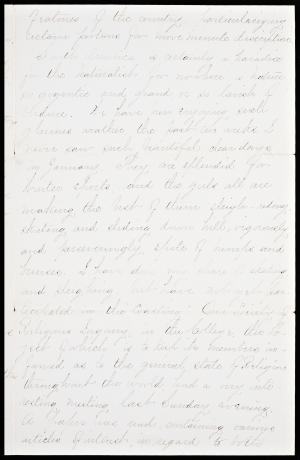 features of the country, particularizing
certain portions for more minute discription
South America is certainly a paradise
for the naturalist for nowhere is nature
so gigantic and grand or so lavish of
We have been enjoying such
glorious weather the past two weeks I
never saw such beautiful clear days
in January. They are splendid for
winter sports, and the girls all are
making the best of them sleigh-riding
skating and sliding down hill, vigorously
and perseveringly, spite of mumps and
I have done my share of skating
and sleighing but have not yet par-
in the "coasting". Our Society of
Religious Inquiry, in the College, the ob-
ject of which is to keep its members in-
formed as to the general state of Religion
throughout the world had a very inte
resting meeting last Sunday evening.
A paper was read, containing various
articles of interest, in regard to both